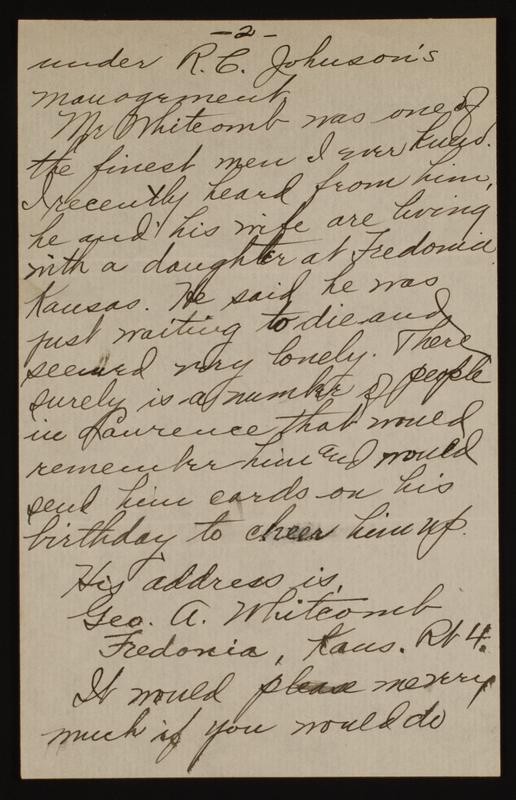 -2-
under R.C. Johnson's
management.
Mr Whitcomb was one of
the finest men I ever knew.
I recently heard from him,
he and his wife are living
with a daughter at Fredonia
Kansas. He said he was
just waiting to die and
seemed very lonely. There
surely is a number of people
in Lawrence that would
remember him and would
send him cards on his
birthday to cheer him up.
His address is,
Geo. A. Whitcomb
Fredonia, Kans. Rt 4.
It would please me very
much if you would do